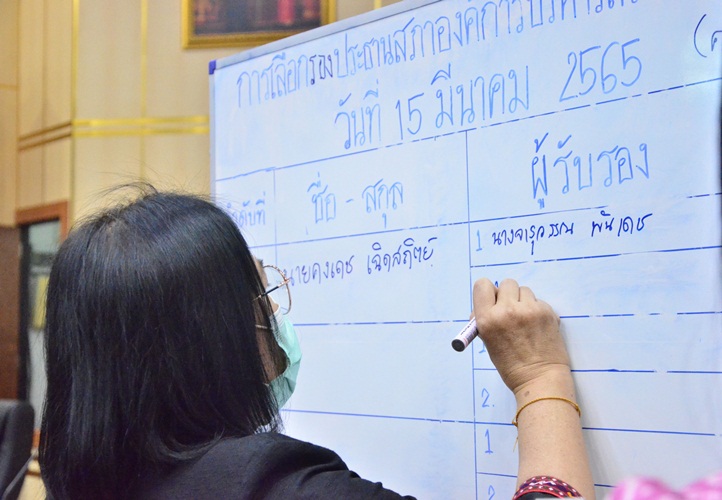 การเลือกรองประธานสภาองค์การบริหารส่วน
วันที่ 15 มีนาคม 2565
ลำดับที่
ชื่อ - สกุล
ผู้รับรอง
นายคงเดช เฉิดสถิตย์
1 นางจารุวรรณ พันเดช
1
2.
1
2